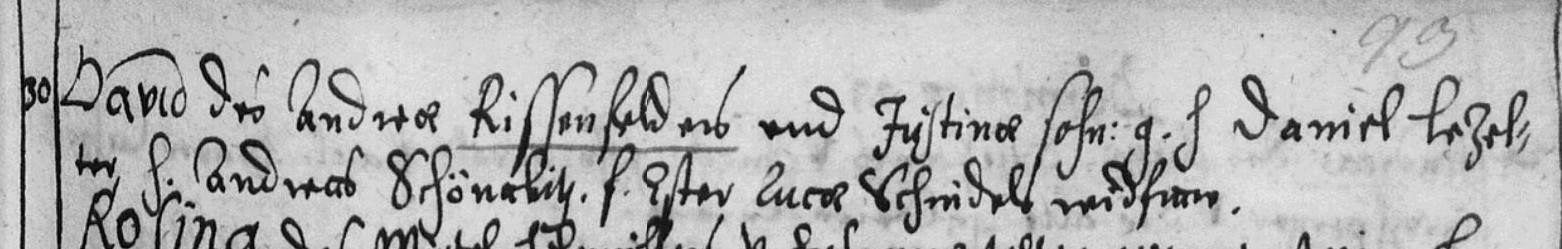 93
30 David des Andreæ Rissenfelders und Justinæ sohn: g. h Daniel Lezel-
ter, h. Andreas Schönakiz. f. Ester Lucæ Schindels widfraw.
Rosina des